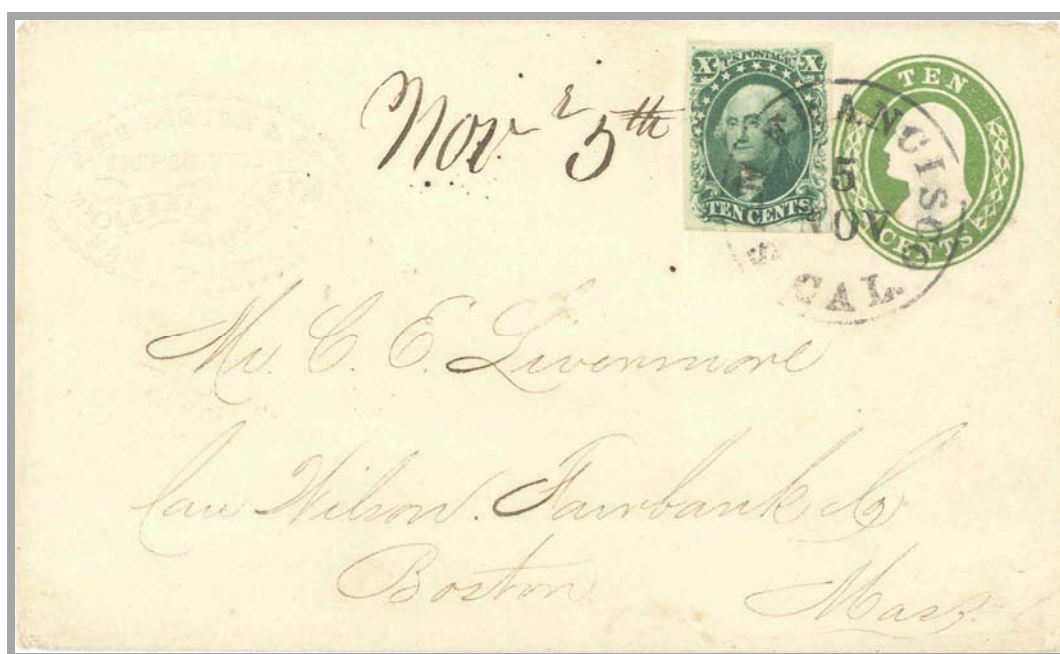 Nov. 5th
U.S. POSTAGE
X X
TEN CENTS
TEN
CENTS
SAN FRANCISCO
5
NOV
CAL.
Mr. C. E. Livermore
Care Wilson. Fairbank & Co
Boston
Mass.